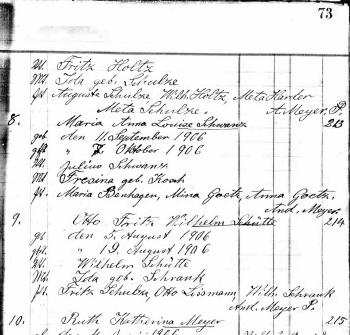 73
V. Fritz Holtz
M. Ida geb. Schulze
pt. Auguste Schulze, Wilh. Holtz, Meta Hanler
Meta Schulze. A. Meyer, P.
8. Maria Anna Louise Schwanz 213
geb. den 11. September 1906
gtft. " 7. Oktober 1906
V. Julius Schwanz
M. geb. Koch
pt. Maria Bienhagen, Minna Goetz, Anna Goetz,
And. Meyer
9. Otto Fritz Wilhelm Schütte 214
geb. den 5. August 1906
gtft. " 19. August 1906
V. Wilhelm Schütte
M. Ida geb. Schrank
pt. Fritz Schulze, Otto Lissmann, Wilh. Schrank
And. Meyer P.
10. Ruth Katherina Meyer 215
1906